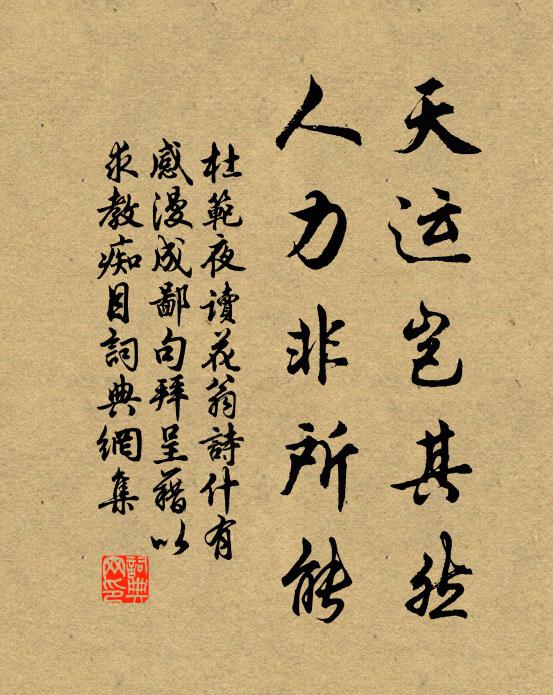 天运岂其然
人力非所能
杜範夜讀花翁詩什有
感漫成鄙句拜呈藉以
求教痴目詞典網集
詞典
网印